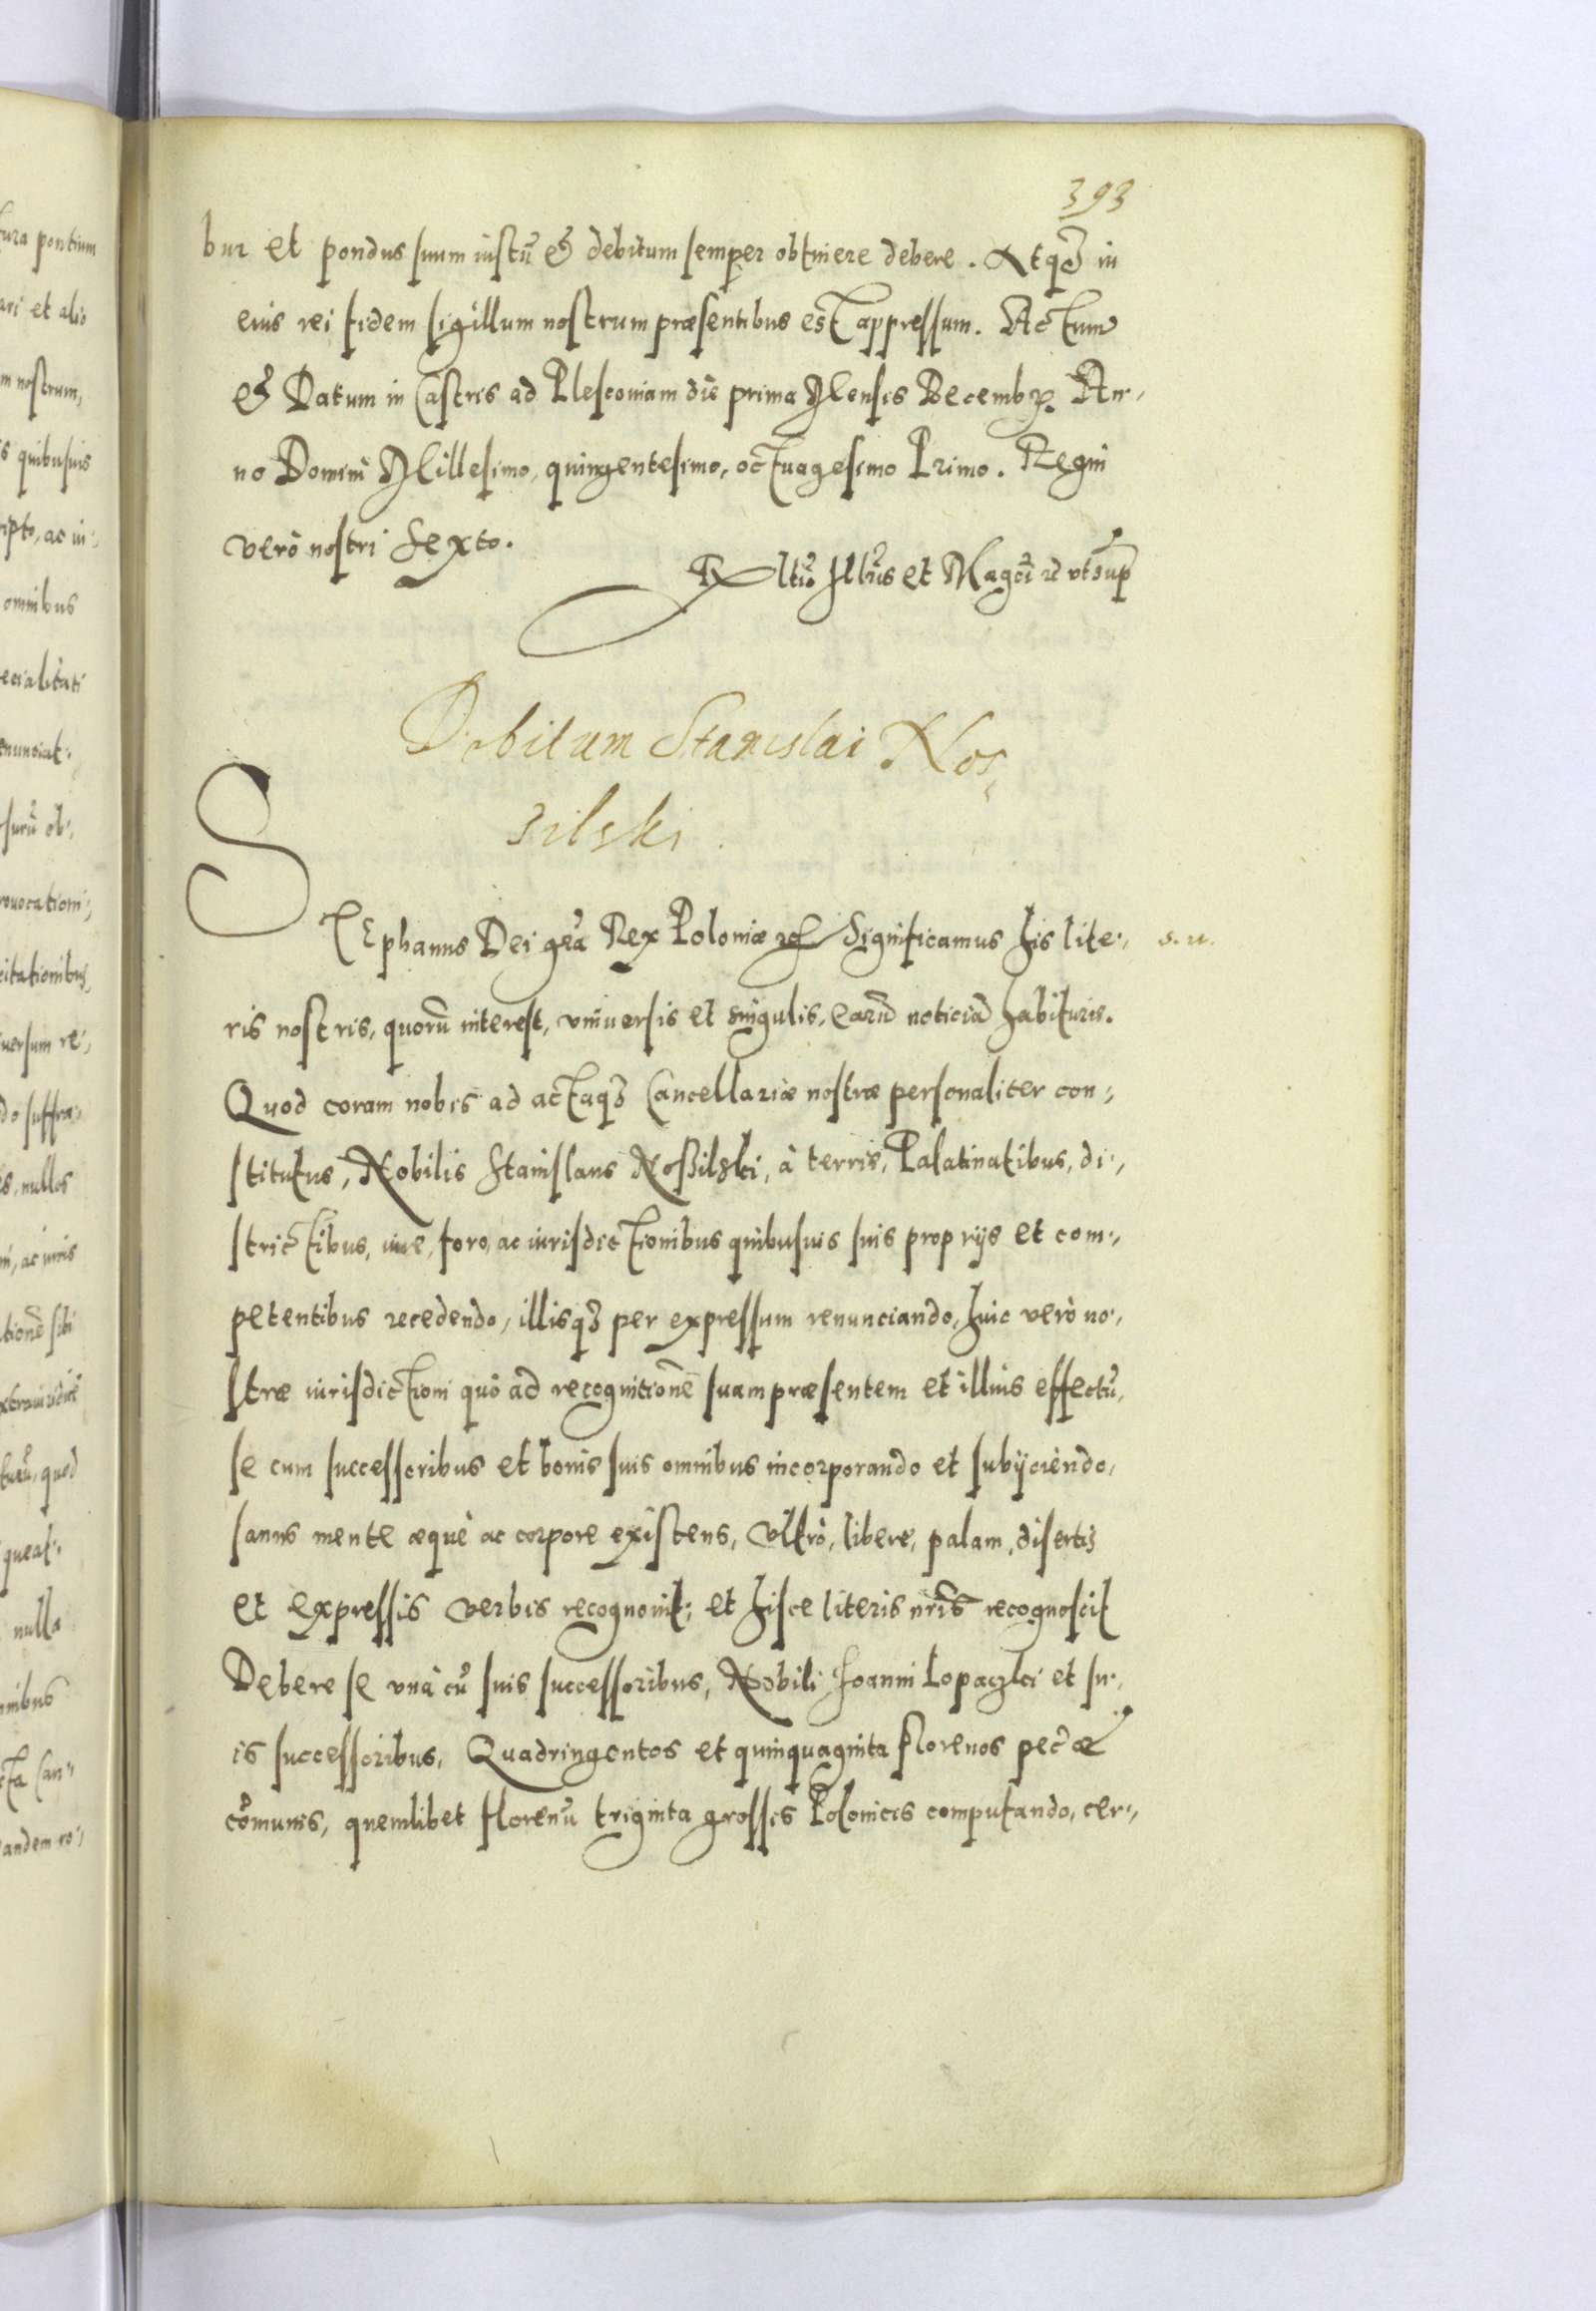 393
bur et pondus suum iustũ & debitum semper obtinere debere. Atqȝ in
eius rei fidem sigillum nostrum præsentibus est appressum. Actum
& Datum in Castris ad Plescouiam die prima Mensis Decembꝝ. An-,
no Domini Millesimo, quingentesimo, octuagesimo Primo. Regni
verò nostri Sexto.
Rltio Illris et Magci ꝛc vt sup
Debitum Stanislai Nos,
silski.
STEphanus Dei grã Rex Poloniæ ꝛc Significamus his lite-,
s. u.
ris nostris, quorũ interest, vniuersis et singulis, earũ noticiã habituris.
Quod coram nobis ad actaqȝ Cancellariæ nostræ personaliter con-,
stitutus, Nobilis Stanislaus Noßilski, à terris, Palatinatibus, di-,
strictibus, iure, foro, ac iurisdictionibus quibusuis suis proprijs et com-,
petentibus recedendo, illisqȝ per expressum renunciando, huic verò no-,
stræ iurisdictioni quò ad recognitionẽ suam præsentem et illius effectũ,
se cum successoribus et bonis suis omnibus incorporando et subijciendo,
sanus mente æquè ac corpore existens, vltrò, liberè, palam, disertis
et expressis verbis recognouit; et hisce literis nr̃is recognoscit
Debere se vnà cũ suis successoribus, Nobili Joanni Lopaczki et su-,
is successoribus, Quadringentos et quinquaginta florenos pec̃æ
cõmunis, quemlibet florenũ triginta grossis Polonicis computando, cer-,
tura pontium
ari et alio
m nostrum,
s quibusuis
ripto, ac in-,
omnibus
ecialitati
enunciat.
surũ ob-,
rouocationi-,
citationibus,
uersum re-,
do suffra-,
s, nullos
ationẽ sibi
turũ, quod
queat.
nulla
cta Can-,
andem ro-,